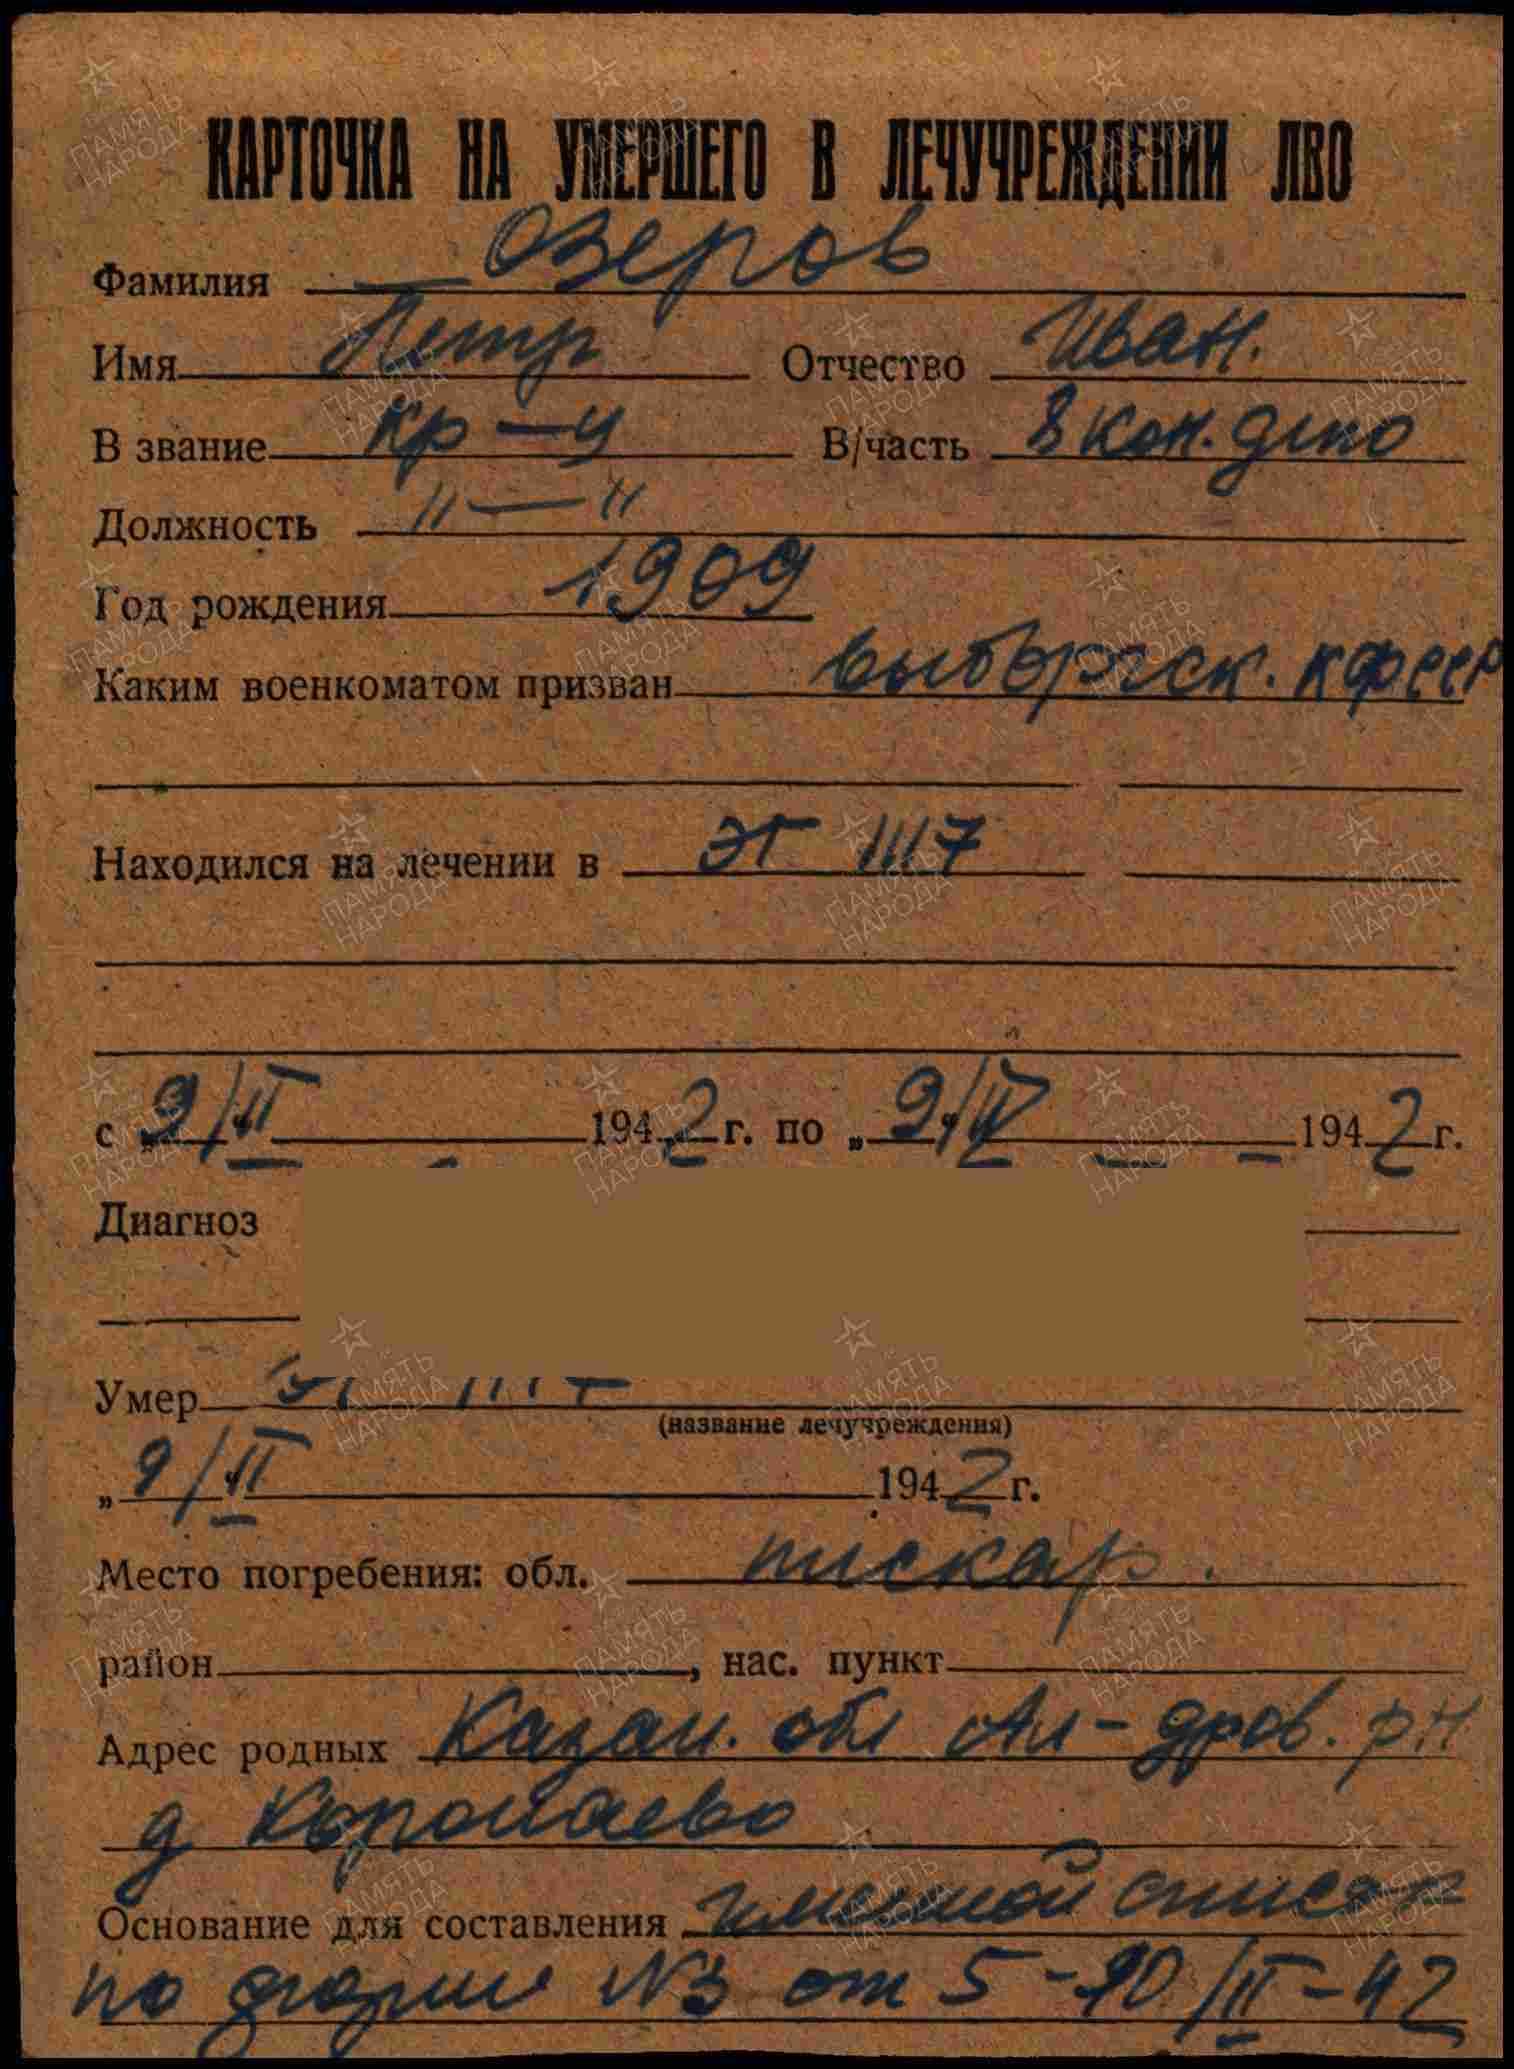 КАРТОЧКА НА УМЕРШЕГО В ЛЕЧУЧРЕЖДЕНИИ ЛВО
Фамилия Озеров
Имя Петр Отчество Иван.
В звание кр-ц В/часть 8 кон. депо
Должность "—"
Год рождения 1909
Каким военкоматом призван Выборгск. КФССР
Находился на лечении в ЭГ 1117
с „9/II 1942 г. по „9/II 1942 г.
Диагноз
Умер ЭГ 1117
(название лечучреждения)
„9/II 1942 г.
Место погребения: обл. пискар.
район , нас. пункт
Адрес родных Казан. обл Ал-дров. р.н
д
Основание для составления именной список
по форме №3 от 5-10/II-42
ПАМЯТЬ НАРОДА